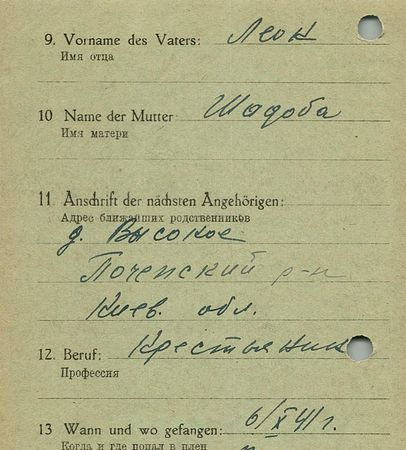 9. Vorname des Vaters: Леон
Имя отца
10 Name der Mutter Шадоба
Имя матери
11. Anschrift der nächsten Angehörigen:
Адрес ближайших родственников
д. Высокое
Поченский р-н
Киев. обл.
12. Beruf: Крестьянин
Профессия
13 Wann und wo gefangen: 6/X 41 г.
Когда и где попал в плен